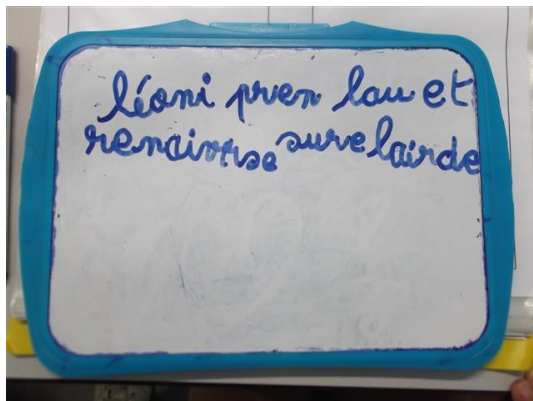 léoni pren lau et
renairse sure lairde